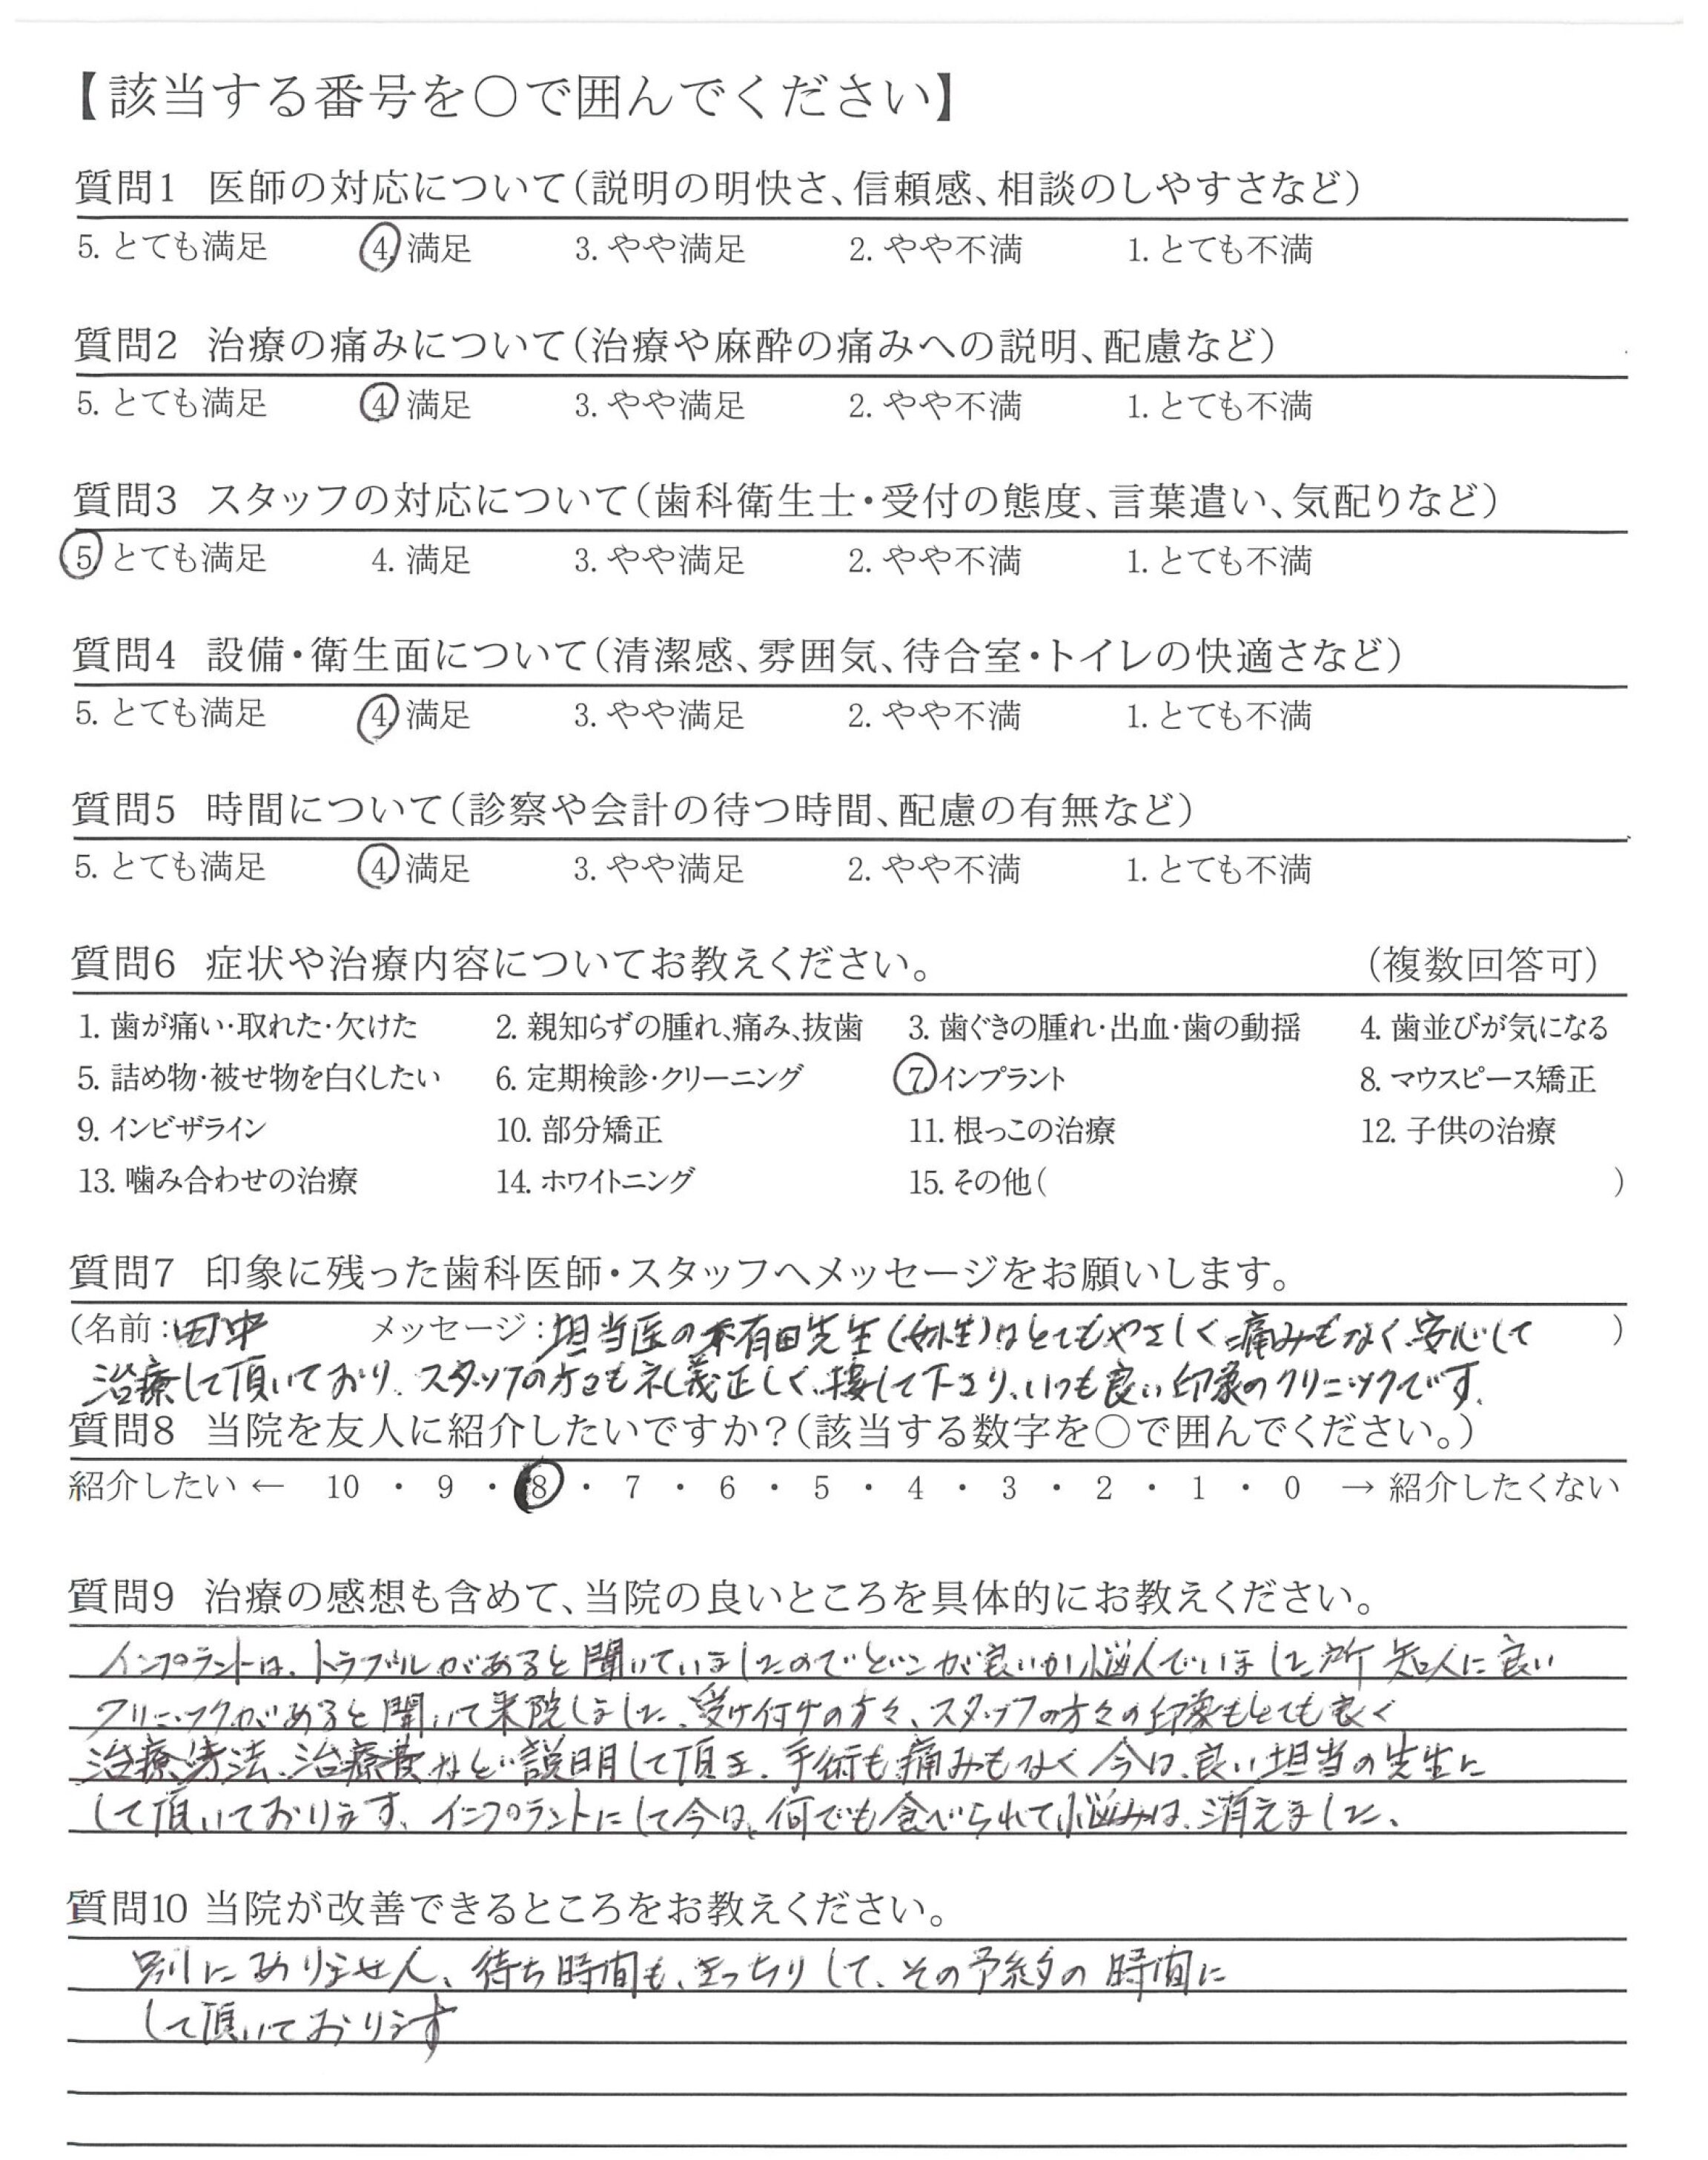 【該当する番号を○で囲んでください】
質問1 医師の対応について（説明の明快さ、信頼感、相談のしやすさなど）
5. とても満足 4. 満足 3. やや満足 2. やや不満 1. とても不満
質問2 治療の痛みについて（治療や麻酔の痛みへの説明、配慮など）
5. とても満足 4. 満足 3. やや満足 2. やや不満 1. とても不満
質問3 スタッフの対応について（歯科衛生士・受付の態度、言葉遣い、気配りなど）
5. とても満足 4. 満足 3. やや満足 2. やや不満 1. とても不満
質問4 設備・衛生面について（清潔感、雰囲気、待合室・トイレの快適さなど）
5. とても満足 4. 満足 3. やや満足 2. やや不満 1. とても不満
質問5 時間について（診察や会計の待つ時間、配慮の有無など）
5. とても満足 4. 満足 3. やや満足 2. やや不満 1. とても不満
質問6 症状や治療内容についてお教えください。 （複数回答可）
1. 歯が痛い・取れた・欠けた 2. 親知らずの腫れ、痛み、抜歯 3. 歯ぐきの腫れ・出血・歯の動揺 4. 歯並びが気になる
5. 詰め物・被せ物を白くしたい 6. 定期検診・クリーニング 7. インプラント 8. マウスピース矯正
9. インビザライン 10. 部分矯正 11. 根っこの治療 12. 子供の治療
13. 噛み合わせの治療 14. ホワイトニング 15. その他（ ）
質問7 印象に残った歯科医師・スタッフへメッセージをお願いします。
（名前：田中 メッセージ：担当医の有田先生（女性）はとてもやさしく、痛みもなく、安心して ）
治療して頂いており、スタッフの方々も礼義正しく、接して下さり、いつも良い印象のクリニックです。
質問8 当院を友人に紹介したいですか？（該当する数字を○で囲んでください。）
紹介したい ← 10 ・ 9 ・ 8 ・ 7 ・ 6 ・ 5 ・ 4 ・ 3 ・ 2 ・ 1 ・ 0 → 紹介したくない
質問9 治療の感想も含めて、当院の良いところを具体的にお教えください。
インプラントは、トラブルがあると聞いていましたのでどこが良いか悩んでいました所 知人に良い
クリニックがあると聞いて来院しました、受け付けの方々、スタッフの方々の印象もとても良く
治療方法、治療費など説明して頂き、手術も痛みもなく 今は、良い担当の先生に
して頂いております、インプラントにして今は、何でも食べられて悩みは、消えました、
質問10 当院が改善できるところをお教えください。
別にありません、待ち時間も、きっちりして、その予約の 時間に
して頂いております